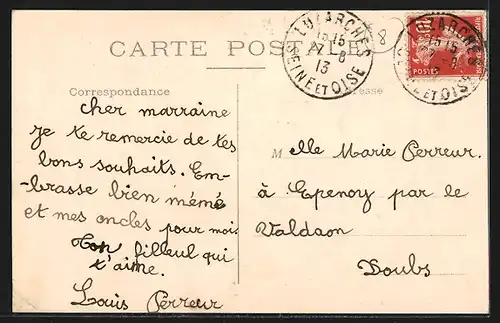 CARTE POSTALE
LUZARCHES
15 15
27 - 8
13
SEINE ET OISE
8
10
POSTES
Correspondance
cher marraine
je te remercie de tes
bons souhaits. Em-
-brasse bien mémé
et mes oncles pour moi
Ton filleul qui
t'aime.
Louis Perreur
Melle Marie Perreur.
à Epenoy par le
Valdaon
Doubs